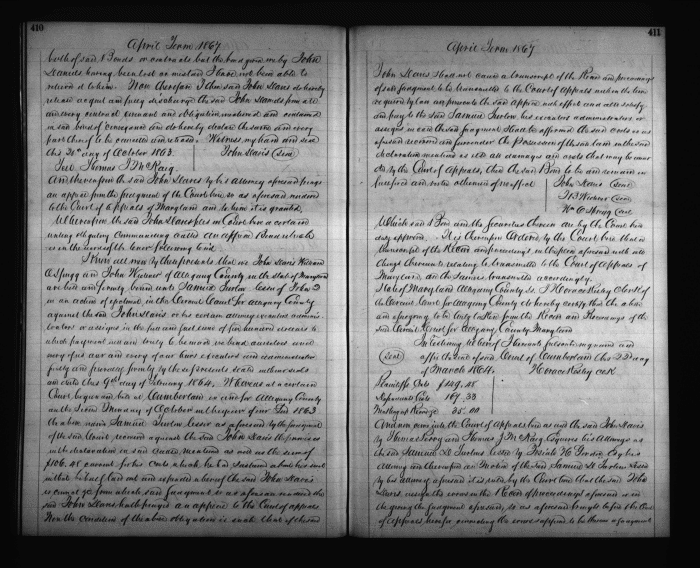 410
April Term 1867
both of said Bonds or contracts but the bond given me by John
Daniels having been lost or mislaid I have not been able to
return it to him. Now therefore I John said John Davis do hereby
release acquit and fully discharge the said John Daniels from all
and every contract covenant and obligation mentioned and contained
in said bond of conveyance and do hereby declare the same and every
part thereof to be cancelled and Witness my hand and seal
this 20th day of October 1863.
John Davis (Seal)
Test Thomas J. McKaig
And thereupon the said John Davis by his attorney aforesaid prays
an appeal from the judgment of the Court here so as aforesaid rendered
to the Court of Appeals of Maryland and to him it is granted.
Whereupon the said John Davis files in Court here a certain
writing obligatory commonly called an appeal Bond which
is in the words of the tenor following to wit.
Know all men by these presents that we John Davis William
A Spragg and John Wickner of Allegany County in the State of Maryland
are held and firmly bound unto Samuel Lurten lessee of John D
in an action of ejectment in the Circuit Court for Allegany County
against the said John Davis or his certain attorney executors adminis
trators or assigns in the full and just sum of five hundred dollars to
which payment well and truly to be made we bind ourselves and
every of us our and every of our heirs executors and administrators
firmly and by these presents sealed with our seals
and dated this 9th day of February 1864. Whereas at a certain
Court begun and held at Cumberland in and for Allegany County
on the Second Monday of October in the year of our Lord 1863
the above named Samuel Lurten lessee as aforesaid by the judgment
of the said Court recovered against the said John Davis the premises
in the declaration in said cause mentioned as well as the sum of
$106. 48 current for his costs which he had sustained about his suit
in that behalf laid out and expended whereof the said John Davis
is convict &c from which said judgment so as aforesaid rendered the
said John Davis hath prayed an appeal to the Court of appeals.
Now the condition of the above obligation is such that if the said
411
April Term 1867
John Davis shall not cause a transcript of the Record and proceedings
of said judgment to be transmitted to the Court of appeals within the time
required by law and prosecute the said appeal with effect and also satisfy
and pay to the said Samuel Lurten his executors administrators or
assigns in case the said judgment shall be affirmed the said costs as
aforesaid recovered and surrender the Possession of the said land in the said
declaration mentioned as also all damages and costs that may be award
ed by the Court of Appeals, then the said Bond to be and remain in
full force and virtue otherwise of no effect
John Davis (Seal)
Wickner (Seal)
Wm A Spragg (Seal)
Which said Bond and the securities therein are by the Court here
duly approved. It is thereupon Ordered by the Court here that a
transcript of the Record and proceedings in the plea aforesaid with all
things thereunto relating be transmitted to the Court of Appeals of
Maryland, and the same is transmitted accordingly.
State of Maryland Allegany County Sc. I Horace Resley Clerk of
the Circuit Court for Allegany County do hereby certify that the above
and aforegoing is truly taken from the Record and Proceedings of the
said Circuit Court for Allegany County Maryland
In testimony whereof I hereunto subscribe my name and
(Seal) affix the seal of said Court at Cumberland this 22 day
of March 1864.
Horace Resley clk
Plaintiffs Costs $149.48
Defendants Costs 167.33
Making of Record 35.00
And now comes into the Court of Appeals here as well the said John Davis
by Thomas Perry and Thomas J McKaig Esquires his attorneys as
the said Samuel Lurten Lessee by Josiah H Gordon Esq his
attorney and thereupon on Motion of the said Samuel Lurten Lessee
by his attorney aforesaid it is ruled by the Court here that the said John
Davis assign the errors in the Record of proceedings aforesaid or in
the giving the judgment aforesaid, so as aforesaid brought before the Court
of Appeals here for prosecuting the said appeal to be thereon a judgment